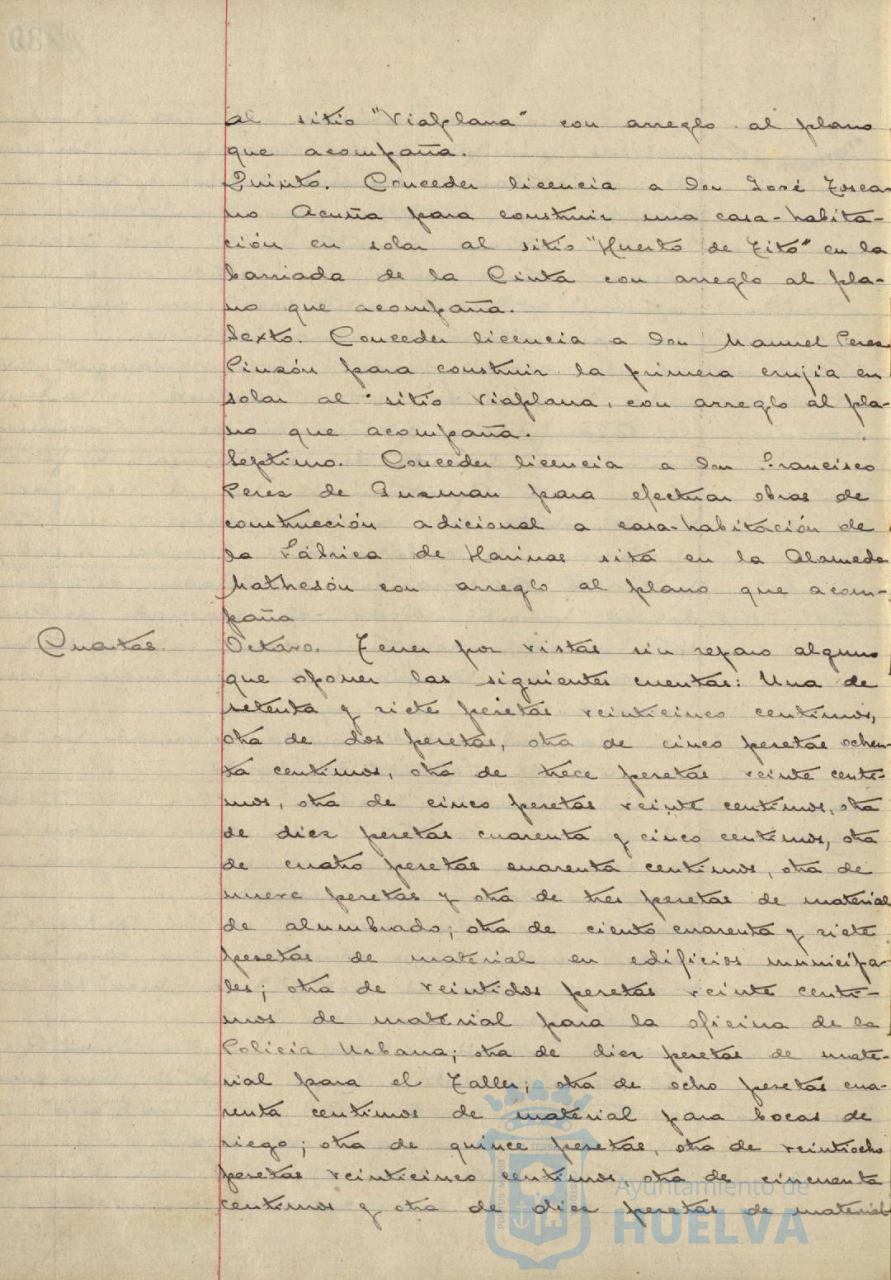 al sitio "Viaplana" con arreglo al plano
que acompaña.
Quinto. Conceder licencia a don José Tosca-
no Acuña para construir una casa-habita-
ción en solar al sitio "Huerto de Tito" en la
barriada de la Cinta con arreglo al pla-
no que acompaña.
Sexto. Conceder licencia a don Manuel Perez
Pinzón para construir la primera crujia en
solar al sitio Viaplana, con arreglo al pla-
no que acompaña.
Septimo. Conceder licencia a don Francisco
Perez de Guzman para efectuar obras de
construcción adicional a casa-habitación de
la Fábrica de Harinas sita en la Alameda
Mathesón con arreglo al plano que acom-
paña
Cuentas. Octavo. Tener por vistas sin reparo alguno
que oponer las siguientes cuentas: Una de
setenta y siete pesetas veinticinco centimos,
otra de dos pesetas, otra de cinco pesetas ochen-
ta centimos, otra de trece pesetas veinte centi-
mos, otra de cinco pesetas veinte centimos, otra
de diez pesetas cuarenta y cinco centimos, otra
de cuatro pesetas cuarenta centimos, otra de
nueve pesetas y otra de tres pesetas de material
de alumbrado; otra de ciento cuarenta y siete
pesetas de material en edificios municipa-
les; otra de veintidos pesetas veinte centi-
mos de material para la oficina de la
Policia Urbana; otra de diez pesetas de mate-
rial para el Taller; otra de ocho pesetas cua-
renta centimos de material para bocas de
riego; otra de quince pesetas, otra de veintiocho
pesetas veinticinco centimos, otra de cincuenta
centimos y otra de diez pesetas de material
Ayuntamiento de
HUELVA